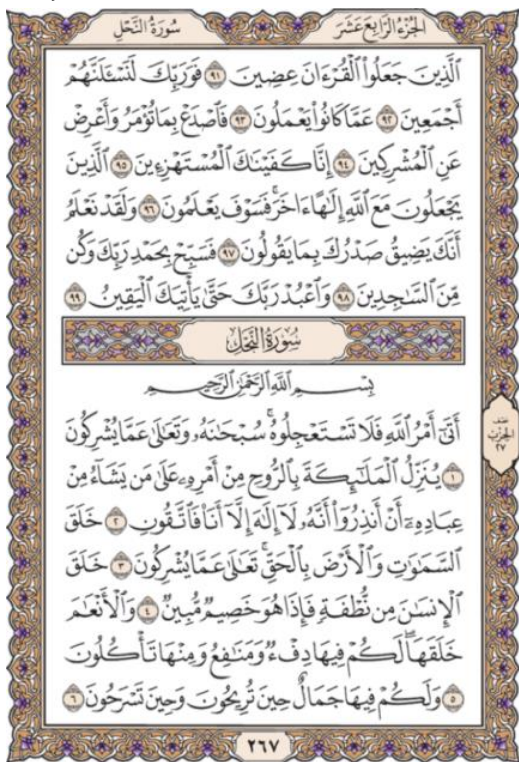 الجُزْءُ الرَّابِعَ عَشَرَ سُورَةُ النَّحْلِ
ٱلَّذِينَ جَعَلُوا۟ ٱلْقُرْءَانَ عِضِينَ ٩١ فَوَرَبِّكَ لَنَسْـَٔلَنَّهُمْ
أَجْمَعِينَ ٩٢ عَمَّا كَانُوا۟ يَعْمَلُونَ ٩٣ فَٱصْدَعْ بِمَا تُؤْمَرُ وَأَعْرِضْ
عَنِ ٱلْمُشْرِكِينَ ٩٤ إِنَّا كَفَيْنَـٰكَ ٱلْمُسْتَهْزِءِينَ ٩٥ ٱلَّذِينَ
يَجْعَلُونَ مَعَ ٱللَّهِ إِلَـٰهًا ءَاخَرَ ۚ فَسَوْفَ يَعْلَمُونَ ٩٦ وَلَقَدْ نَعْلَمُ
أَنَّكَ يَضِيقُ صَدْرُكَ بِمَا يَقُولُونَ ٩٧ فَسَبِّحْ بِحَمْدِ رَبِّكَ وَكُن
مِّنَ ٱلسَّـٰجِدِينَ ٩٨ وَٱعْبُدْ رَبَّكَ حَتَّىٰ يَأْتِيَكَ ٱلْيَقِينُ ٩٩
سُورَةُ النَّحْلِ
بِسْمِ ٱللَّهِ ٱلرَّحْمَـٰنِ ٱلرَّحِيمِ
أَتَىٰٓ أَمْرُ ٱللَّهِ فَلَا تَسْتَعْجِلُوهُ ۚ سُبْحَـٰنَهُۥ وَتَعَـٰلَىٰ عَمَّا يُشْرِكُونَ
١ يُنَزِّلُ ٱلْمَلَـٰٓئِكَةَ بِٱلرُّوحِ مِنْ أَمْرِهِۦ عَلَىٰ مَن يَشَآءُ مِنْ
عِبَادِهِۦٓ أَنْ أَنذِرُوٓا۟ أَنَّهُۥ لَآ إِلَـٰهَ إِلَّآ أَنَا۠ فَٱتَّقُونِ ٢ خَلَقَ
ٱلسَّمَـٰوَٰتِ وَٱلْأَرْضَ بِٱلْحَقِّ ۚ تَعَـٰلَىٰ عَمَّا يُشْرِكُونَ ٣ خَلَقَ
ٱلْإِنسَـٰنَ مِن نُّطْفَةٍ فَإِذَا هُوَ خَصِيمٌ مُّبِينٌ ٤ وَٱلْأَنْعَـٰمَ
خَلَقَهَا ۗ لَكُمْ فِيهَا دِفْءٌ وَمَنَـٰفِعُ وَمِنْهَا تَأْكُلُونَ
٥ وَلَكُمْ فِيهَا جَمَالٌ حِينَ تُرِيحُونَ وَحِينَ تَسْرَحُونَ ٦
نصف
الحزب
٢٧
٢٦٧